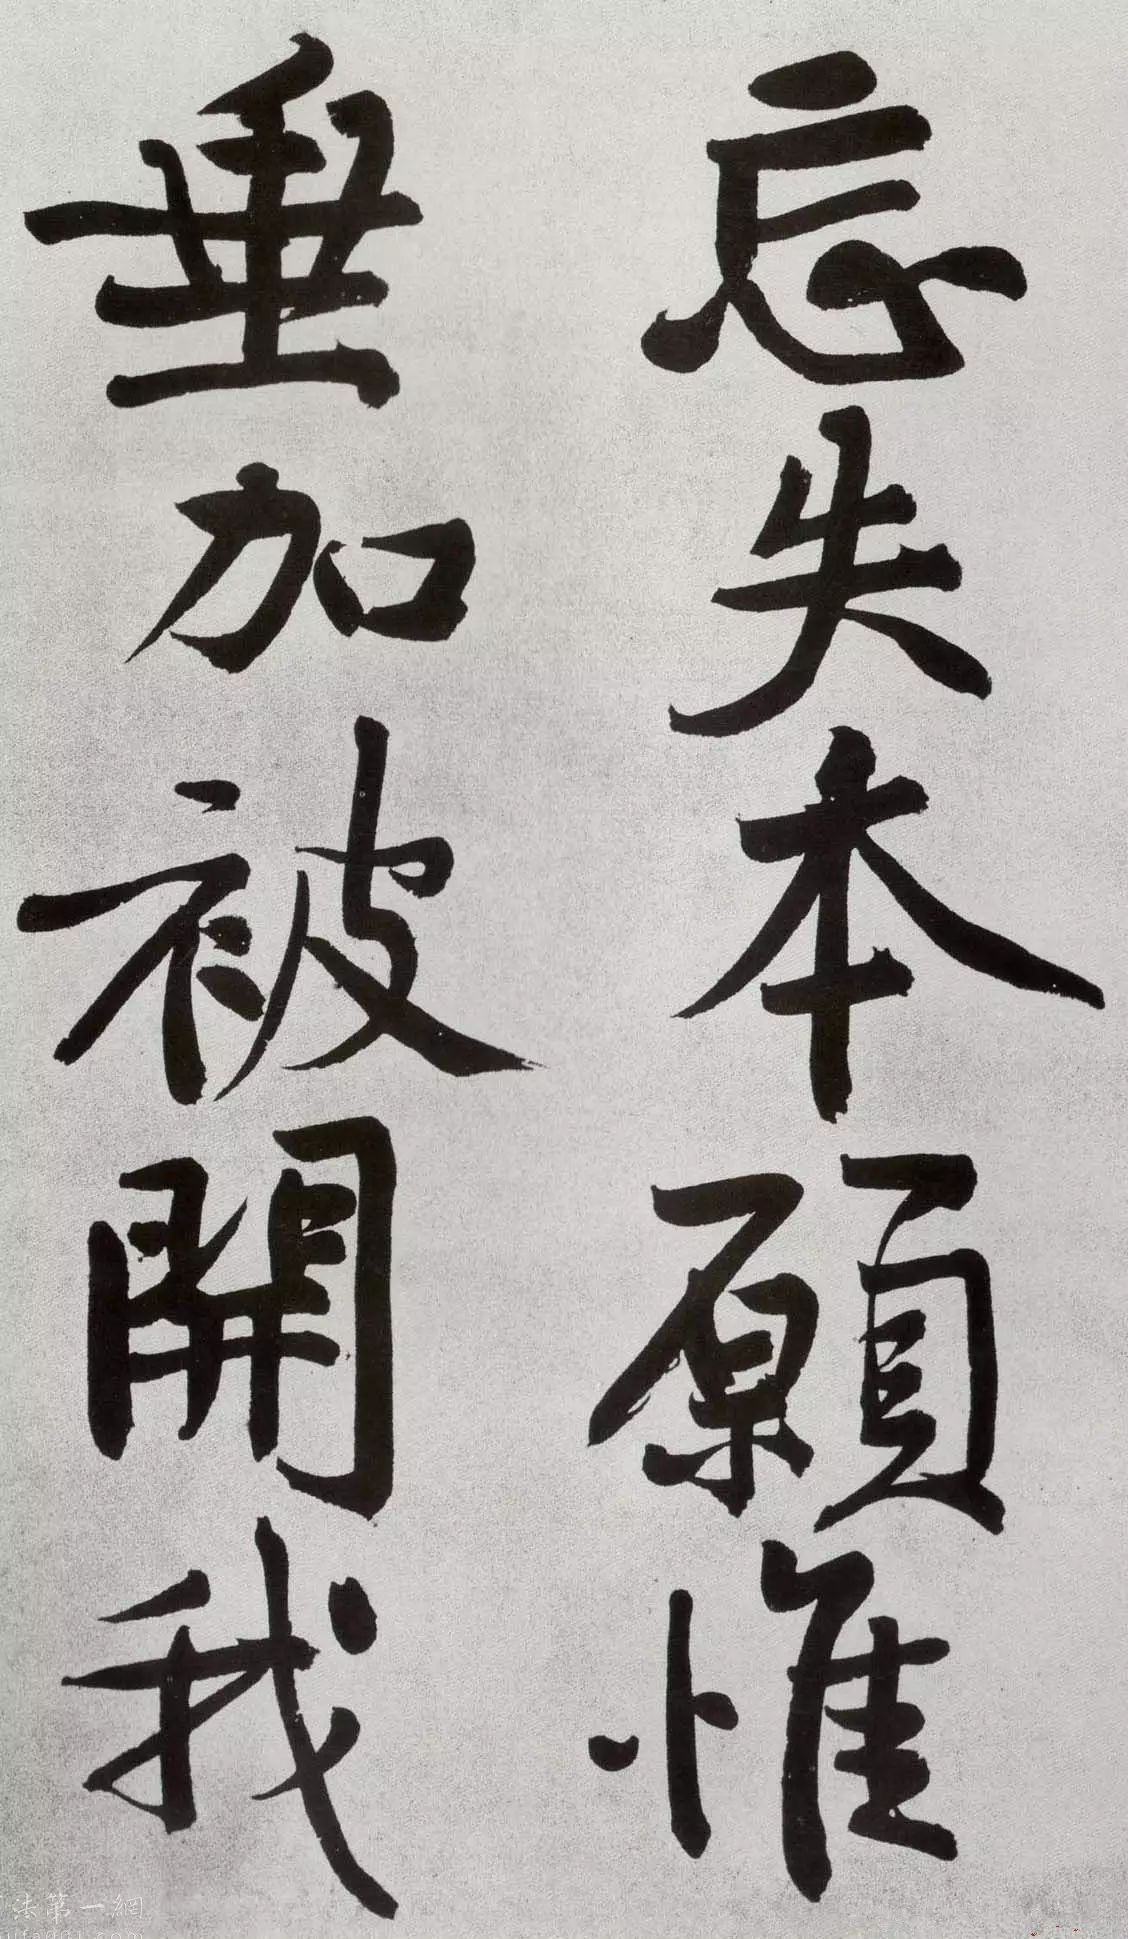 忘失本願惟
垂加被開我
法第一網